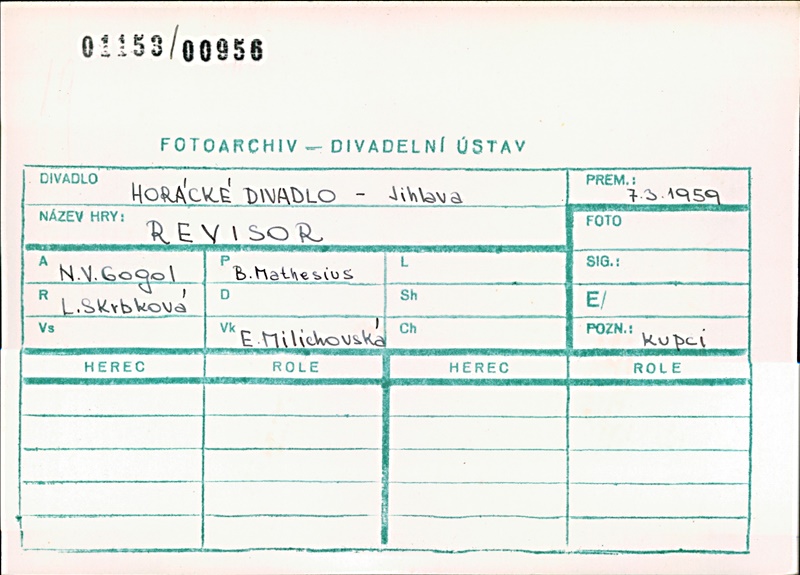 01153/00956
FOTOARCHIV — DIVADELNÍ ÚSTAV
DIVADLO HORÁCKÉ DIVADLO - Jihlava PREM.: 7.3.1959
NÁZEV HRY: REVISOR FOTO
A N.V.Gogol P B.Mathesius L SIG.:
R L.Skrbková D Sh E/
Vs Vk E.Milichovská Ch POZN.: kupci
HEREC ROLE HEREC ROLE